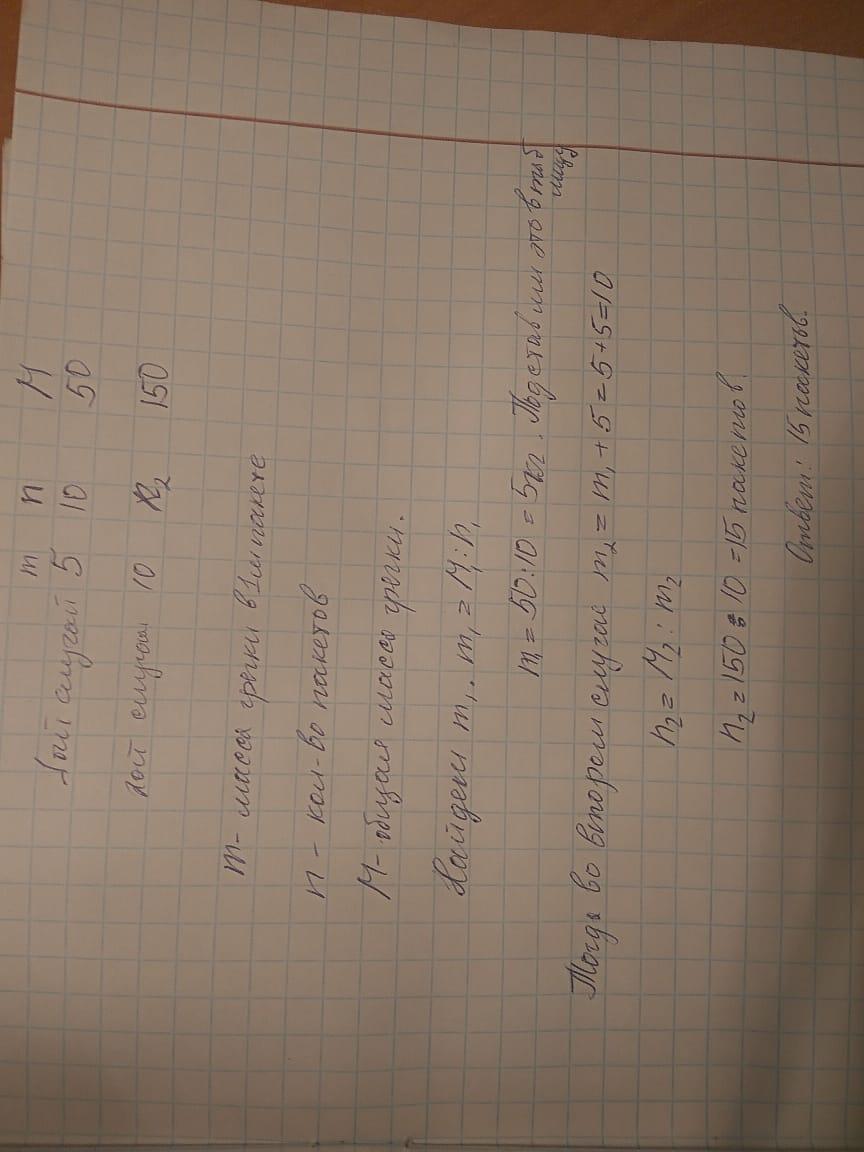 m n M
1ый случай 5 10 50
2ой случай 10 n₂ 150
m - масса гречки в 1ом пакете
n - кол-во пакетов
M - общая масса гречки.
Найдем m₁. m₁ = M₁ : n₁
m₁ = 50:10 = 5кг. Подставим это в таб
лицу
Тогда во втором случае m₂ = m₁ + 5 = 5+5=10
n₂ = M₂ : m₂
n₂ = 150 : 10 = 15 пакетов.
Ответ: 15 пакетов.